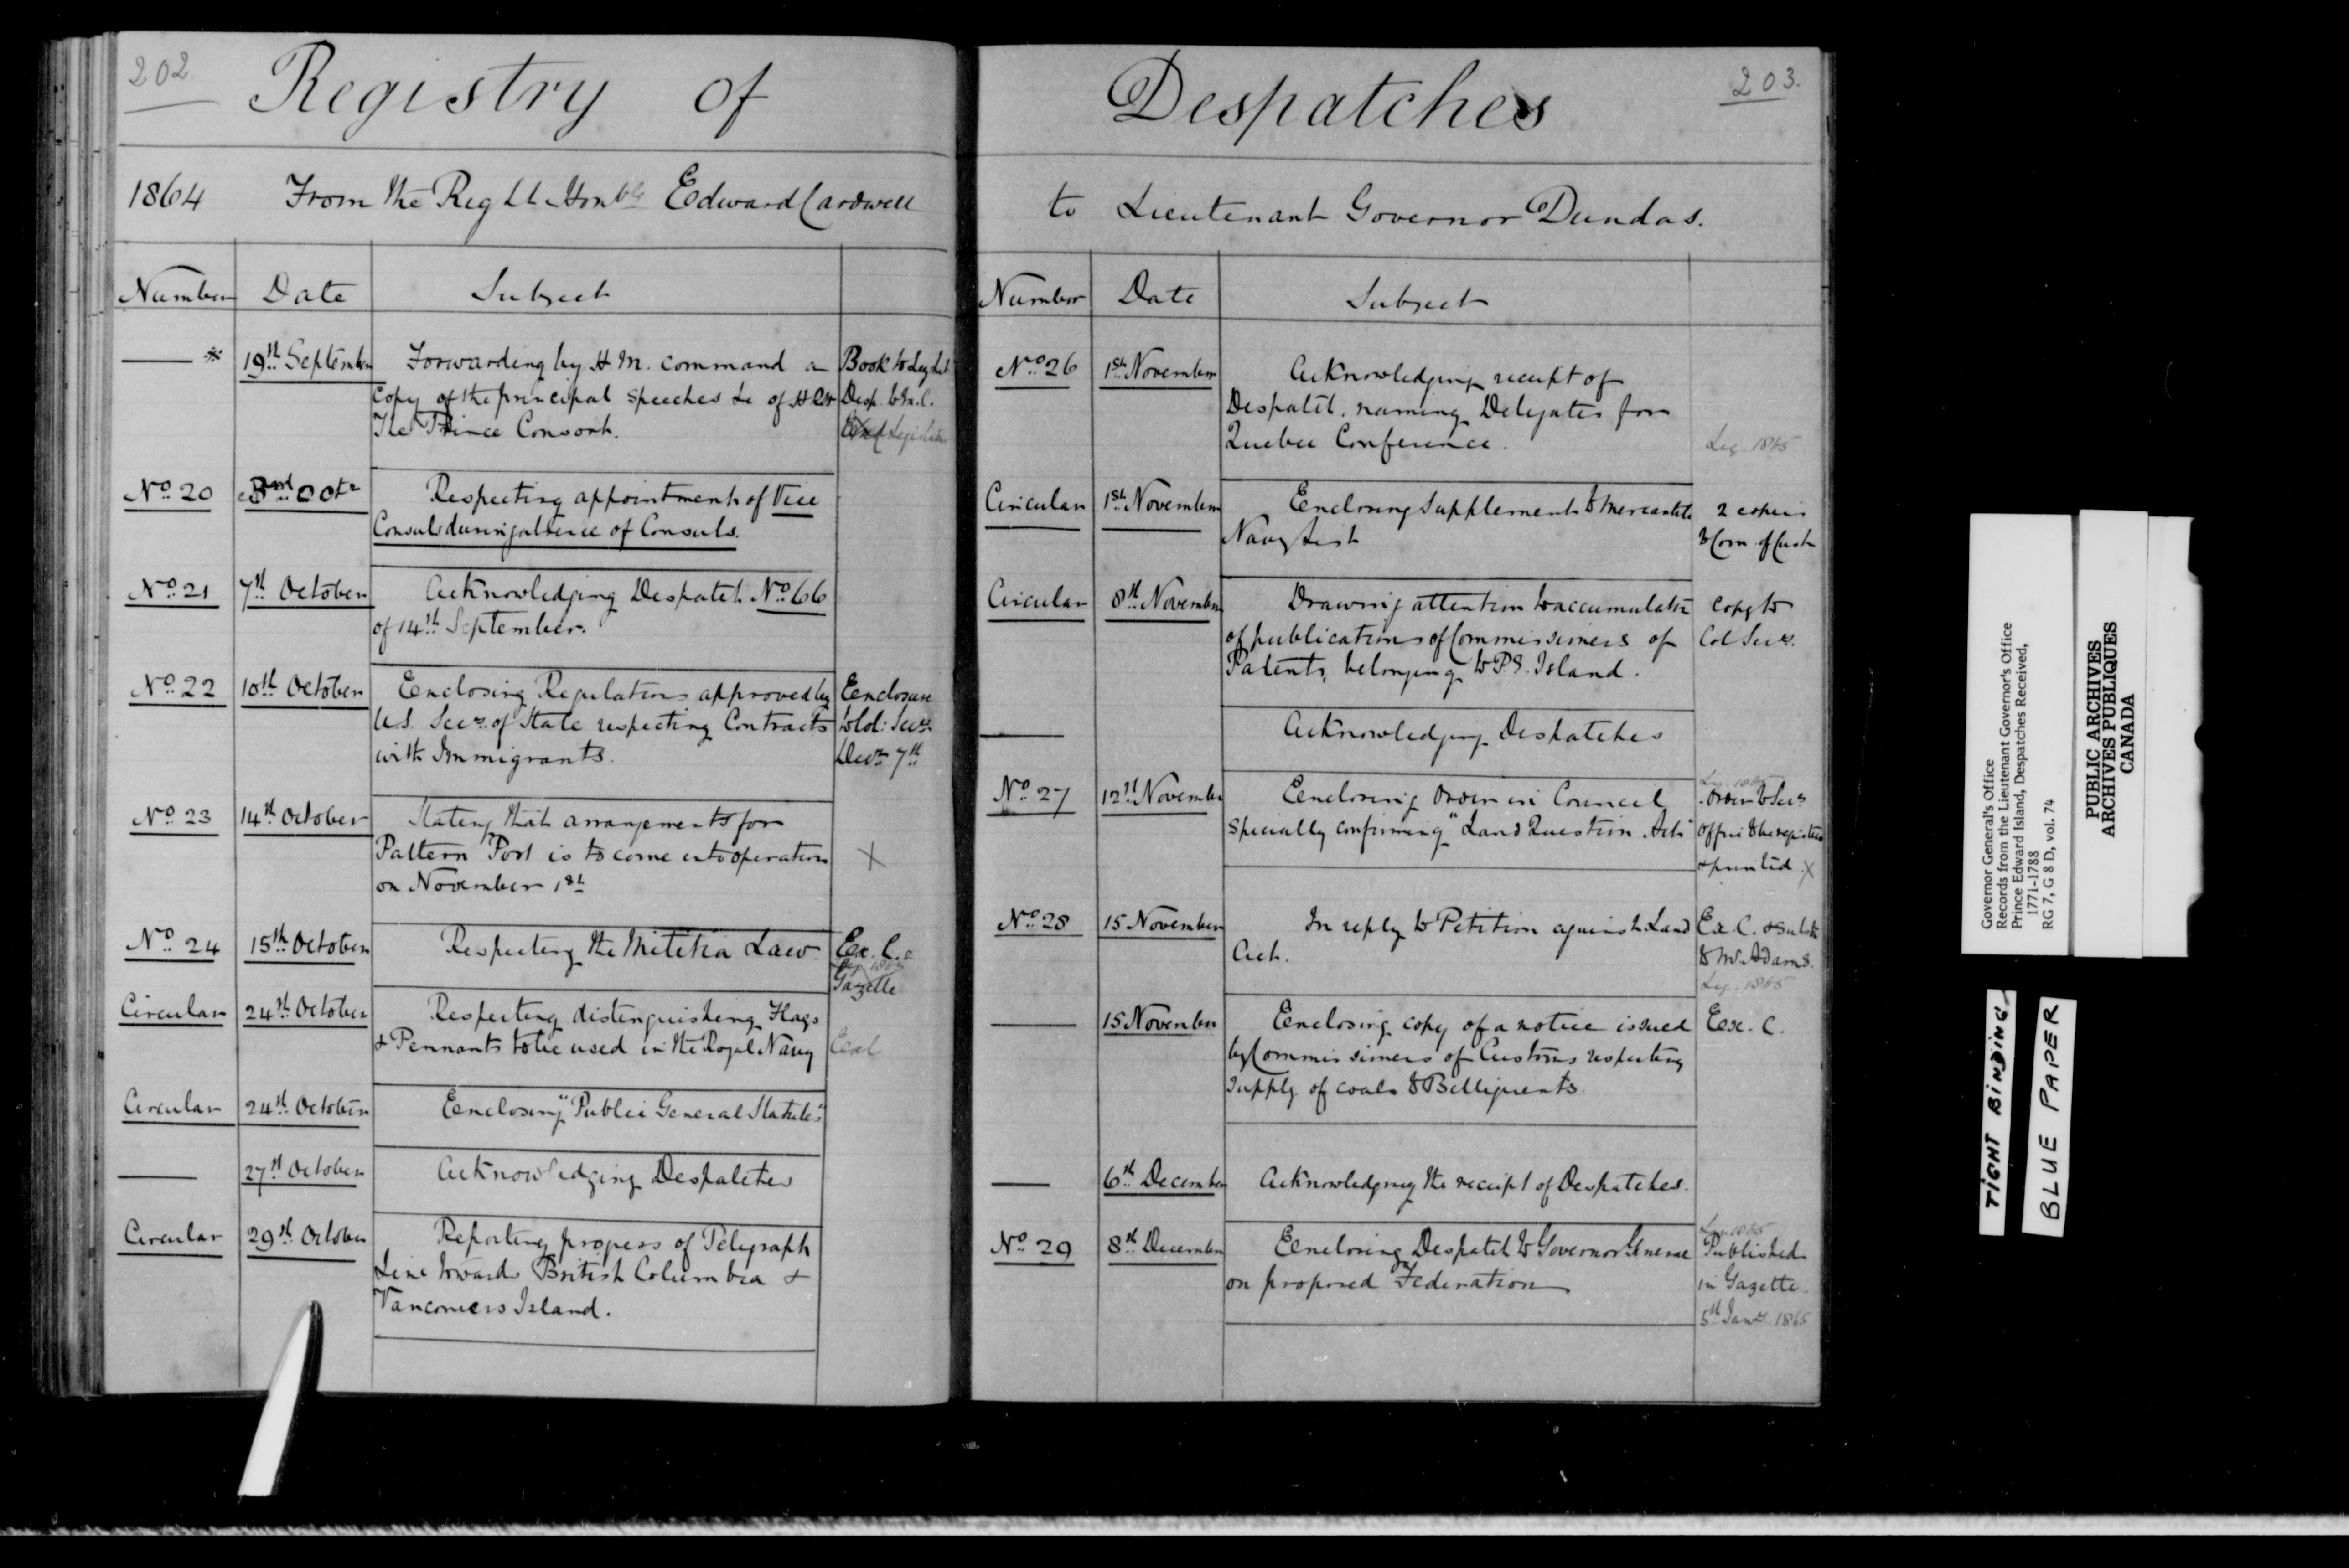 202
Registry of
1864 From the Right Honble Edward Cardwell
Number Date Subject
* 19th September Forwarding by H M. command a Book to Leg Lib
copy of the principal speeches &c of H R H Desp. to Ex. C.
The Prince Consort. Legislature
No. 20 3rd Octr Respecting appointments of Vice
Consuls during absence of Consuls.
No. 21 7th October Acknowledging Despatch No. 66
of 14th September.
No. 22 10th October Enclosing Regulations approved by Enclosure
U.S. Secy. of State respecting Contracts to Col: Secy.
with Immigrants. Decr 7th
No. 23 14th October Stating that arrangements for
Pattern Post is to come into operation X
on November 1st
No. 24 15th October Respecting the Militia Law Ex. C.
Gazette
Circular 24th October Respecting distinguishing Flags
& Pennants to be used in the Royal Navy
Circular 24th October Enclosing "Public General Statutes"
27th October Acknowledging Despatches
Circular 29th October Reporting progress of Telegraph
Line towards British Columbia &
Vancouvers Island.
203.
Despatches
to Lieutenant Governor Dundas.
Number Date Subject
No. 26 1st November Acknowledging receipt of
Despatch. naming Delegates for
Quebec Conference. Leg. 1865
Circular 1st November Enclosing Supplement to Mercantile 2 copies
Navy List to Com. of Cust
Circular 8th November Drawing attention to accumulation Copy to
of publications of Commissioners of Col Secy.
Patents, belonging to P.E. Island.
Acknowledging Despatches
No. 27 12th November Enclosing Order in Council Order to Secys
specially confirming "Land Question Act" Office to be registered
& printed X
No. 28 15 November In reply to Petition against Land Ex C. & Subst
Act. to Mr. Adams.
Leg. 1865
15 November Enclosing copy of a notice issued Ex. C.
by Commissioners of Customs respecting
supply of coals to Belligerents.
6th December Acknowledging the receipt of Despatches.
Leg. 1865
No. 29 8th December Enclosing Despatch to Governor General Published
on proposed Federation in Gazette.
5th Jany. 1865
Governor General's Office
Records from the Lieutenant Governor's Office
Prince Edward Island, Despatches Received,
1771-1788
RG 7, G 8 D, vol. 74
PUBLIC ARCHIVES
ARCHIVES PUBLIQUES
CANADA
TIGHT BINDING
BLUE PAPER